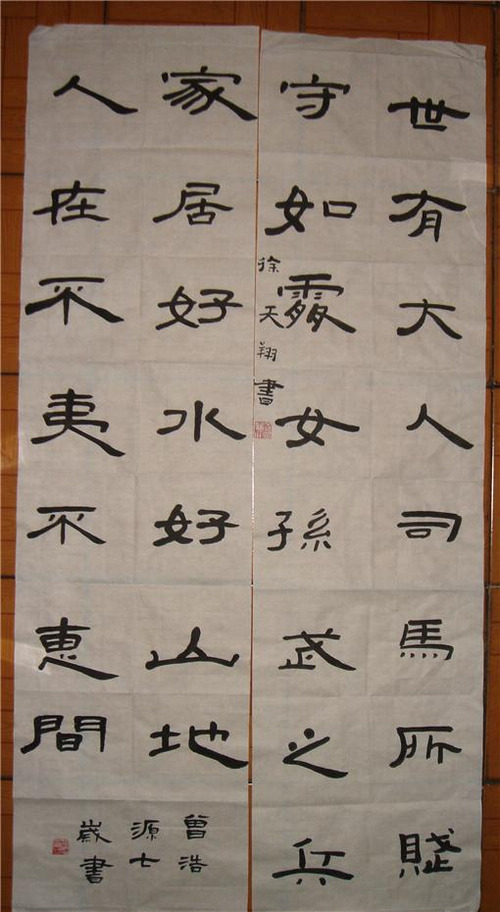 世有大人司馬所賦
守如處女孫武之兵
徐天翔書
家居好水好山地
人在不夷不惠間
曾浩
源七
歲書